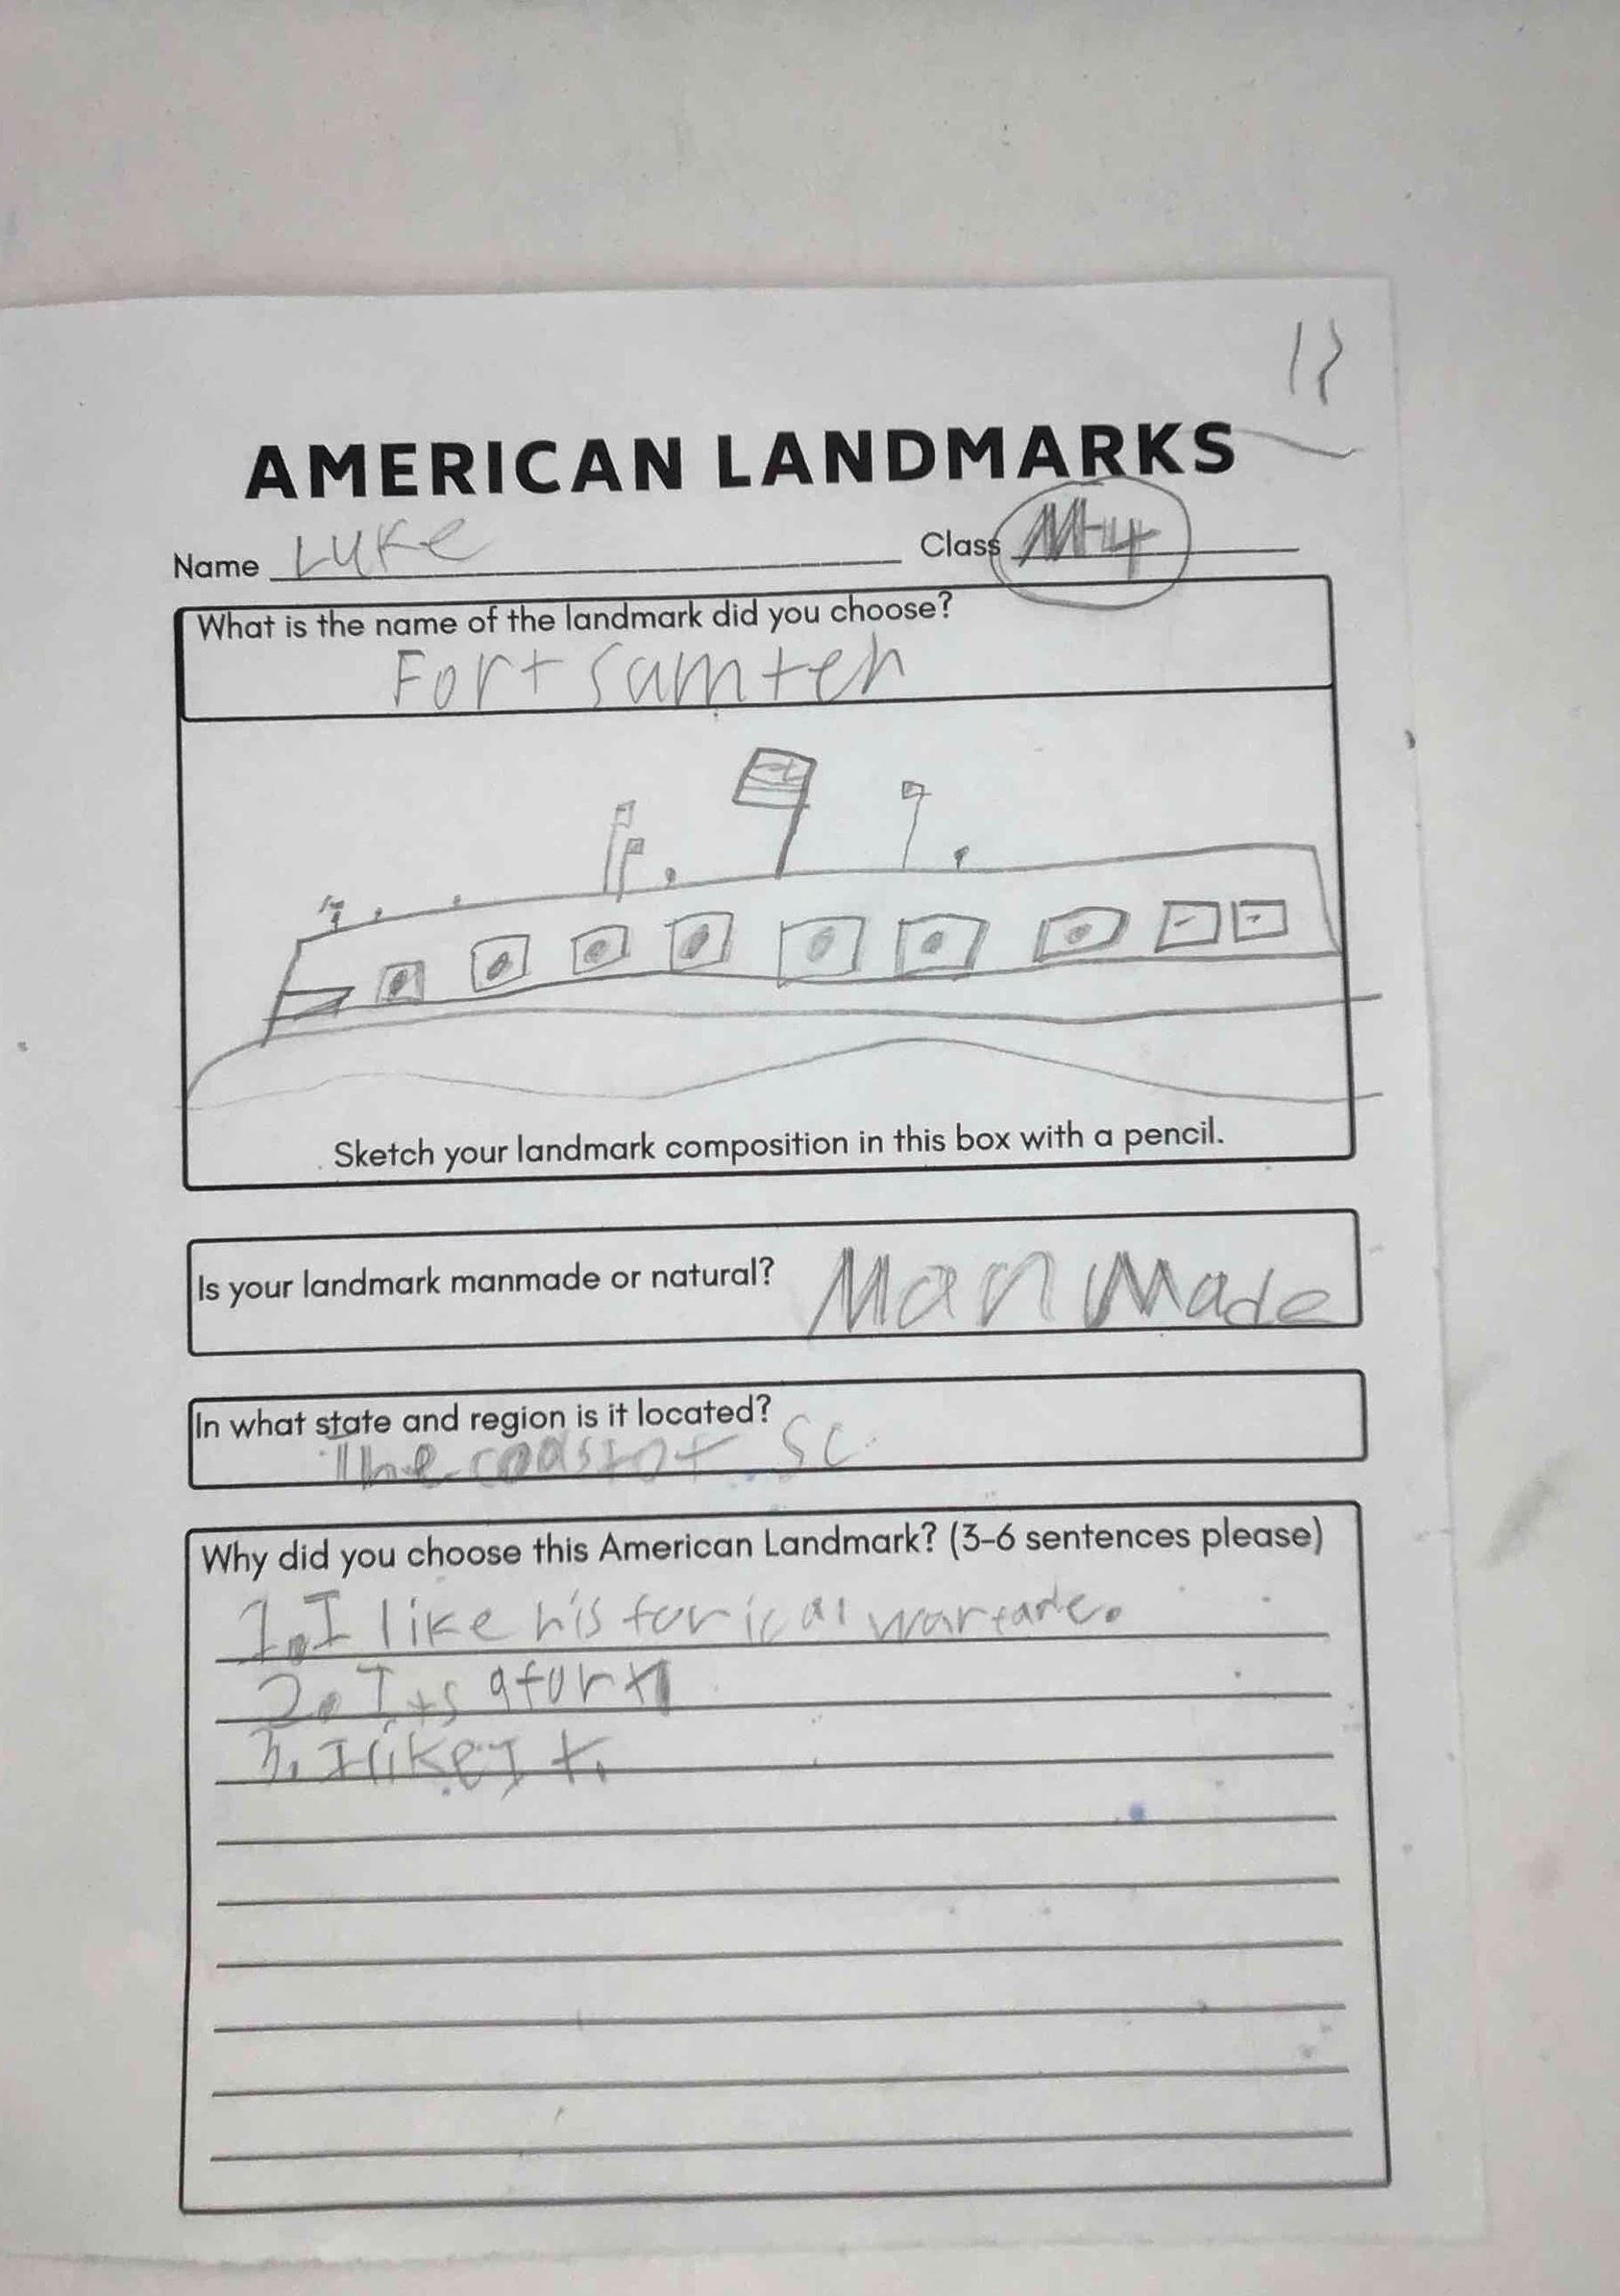 17
AMERICAN LANDMARKS
Name Luke Class M-4
What is the name of the landmark did you choose?
Fort Sumter
Sketch your landmark composition in this box with a pencil.
Is your landmark manmade or natural? Man Made
In what state and region is it located?
The coast of SC
Why did you choose this American Landmark? (3-6 sentences please)
1. I like historical warfare.
2. Its a fort
3. I like It.